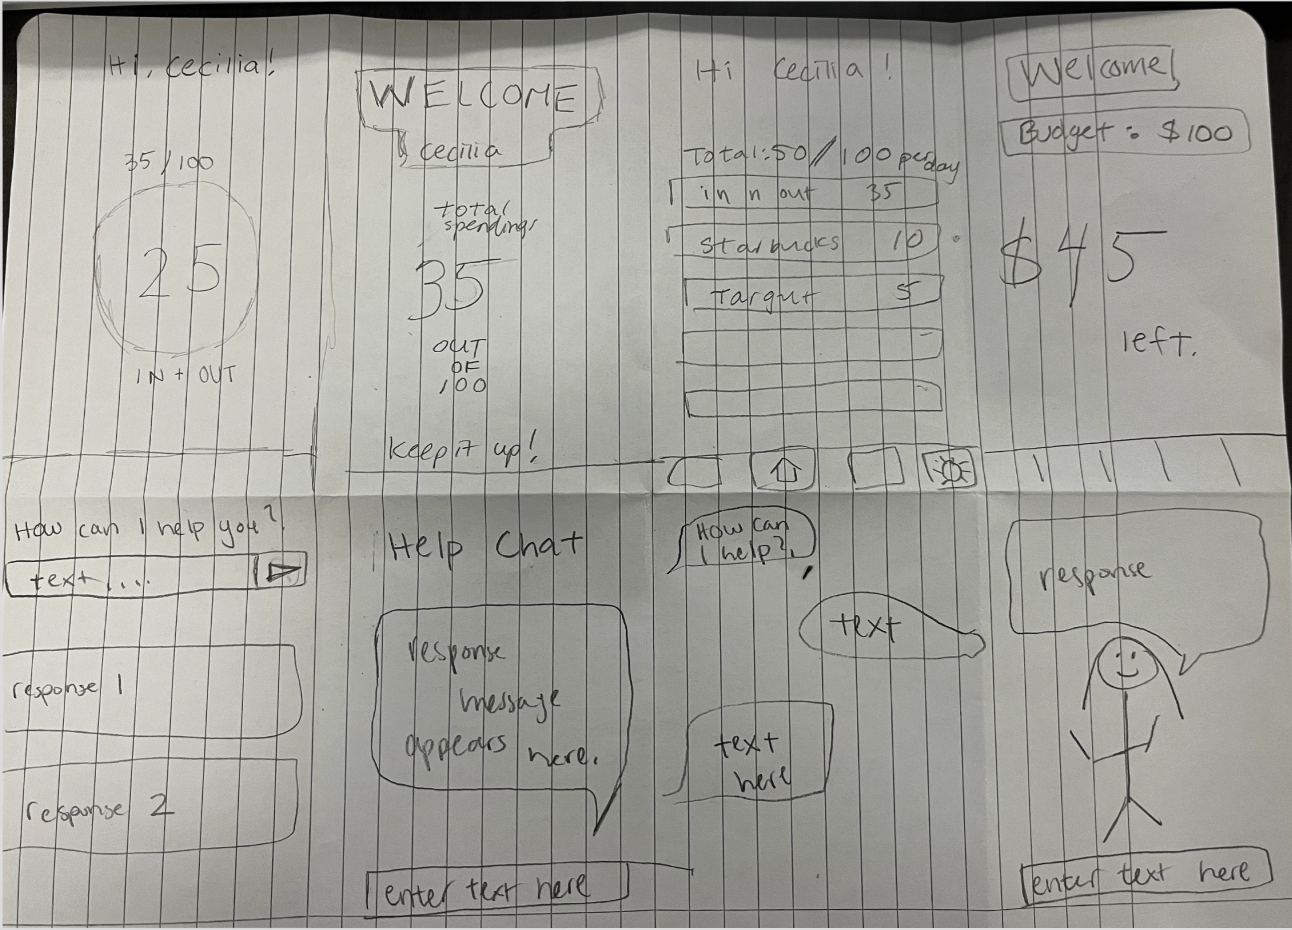 Hi, Cecilia!
35/100
25
IN + OUT
WELCOME
Cecilia
total
spendings
35
OUT
OF
100
Keep it up!
Hi Cecilia!
Total: 50/100 per day
in n out 35
Starbucks 10
Targut 5
Welcome
Budget: $100
$45
left.
How can I help you?
text....
response 1
response 2
Help Chat
response
message
appears here.
enter text here
How can
I help?
text
text
here
response
enter text here